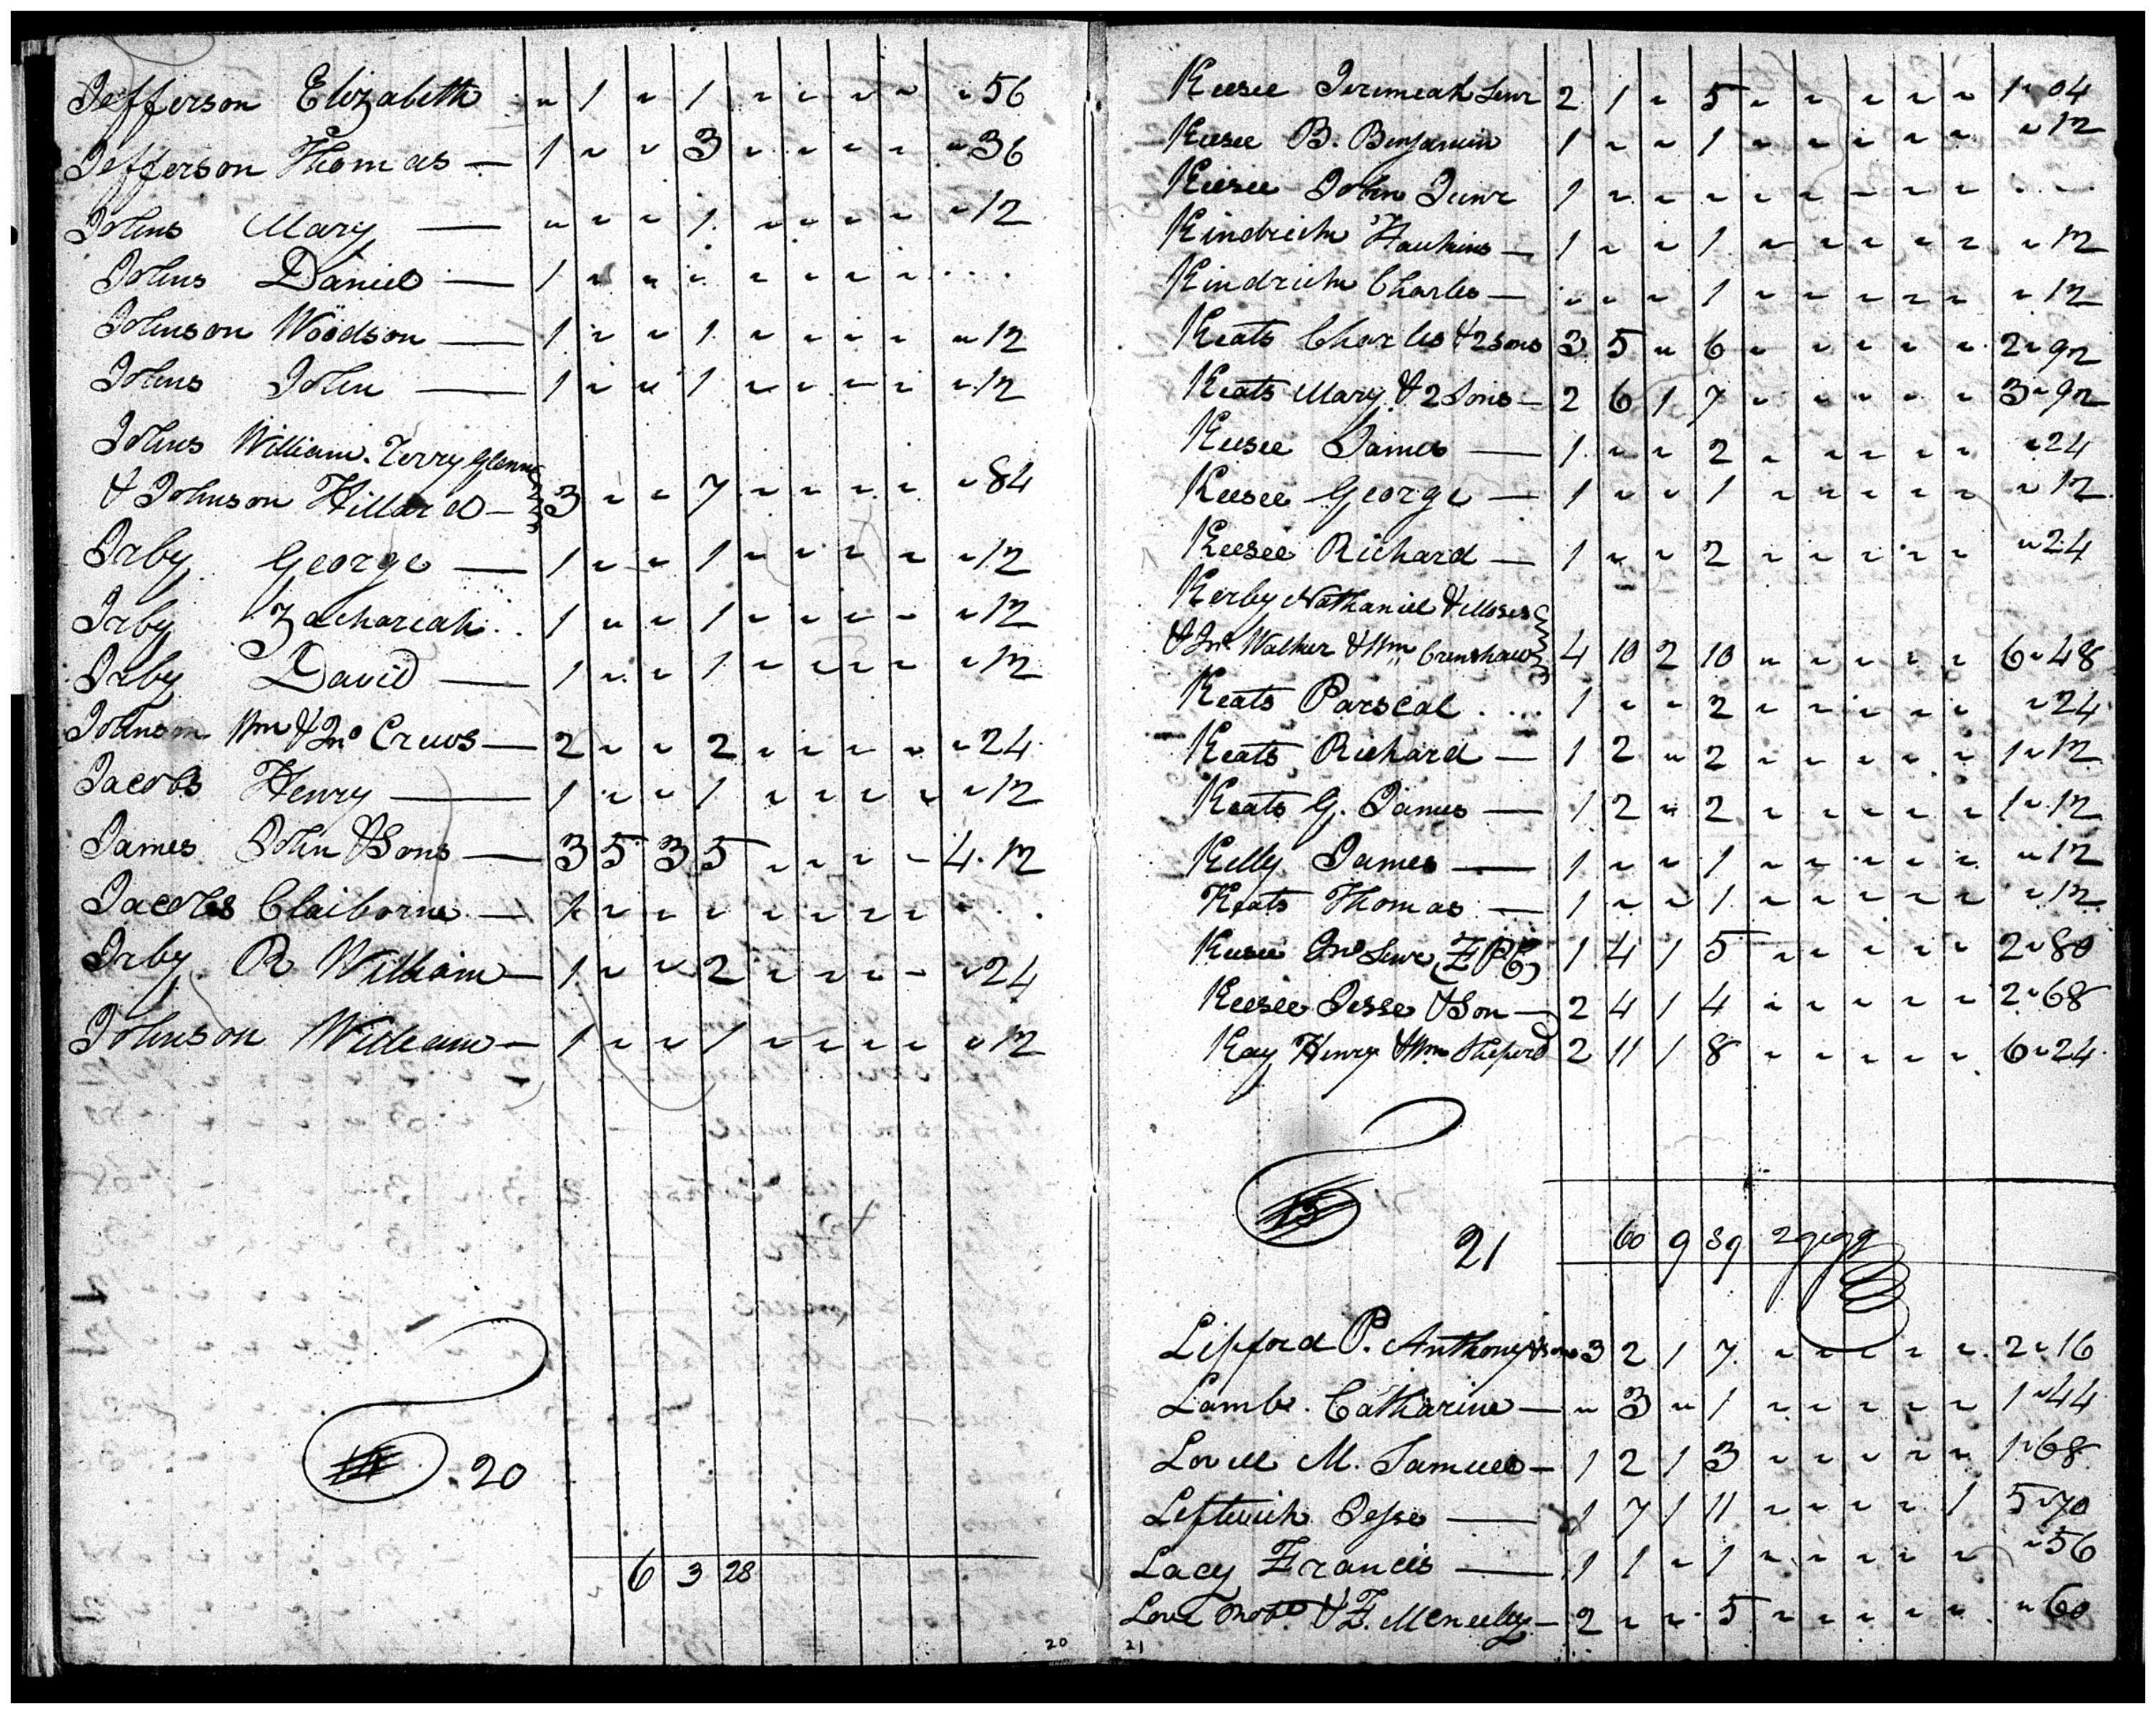 Jefferson Elizabeth " 1 " 1 " " " " " 56
Jefferson Thomas — 1 " " 3 " " " " " 36
Johns Mary — " " " 1 " " " " " 12
Johns Daniel — 1 " " " " " " " . . .
Johnson Woodson — 1 " " 1 " " " " " 12
Johns John — 1 " " 1 " " " " " 12
Johns William. Terry Glenn
& Johnson Hillard — 3 " " 7 " " " " " 84
Irby George — 1 " " 1 " " " " " 12
Irby Zachariah . . 1 " " 1 " " " " " 12
Irby David — 1 " " 1 " " " " " 12
Johnson Wm & Jno Crews — 2 " " 2 " " " " " 24
Jacobs Henry — 1 " " 1 " " " " " 12
James John & Sons — 3 5 3 5 " " " " 4 . 12
Jacobs Claiborne — 1 " " " " " " " . . .
Irby R William — 1 " " 2 " " " " " 24
Johnson William — 1 " " 1 " " " " " 12
. 20
6 3 28
20
Keesee Jeremeah Senr 2 1 " 5 " " " " " 1 " 04
Keesee B. Benjamin 1 " " 1 " " " " " " 12
Keesee John Junr 1 " " " " " " " " . . .
Kindrick Hawkins — 1 " " 1 " " " " " " 12
Kindrick Charles — " " " 1 " " " " " " 12
Keats Charles & 2 sons 3 5 " 6 " " " " " 2 " 92
Keats Mary & 2 Sons — 2 6 1 7 " " " " " 3 " 92
Keesee James — 1 " " 2 " " " " " " 24
Keesee George — 1 " " 1 " " " " " " 12
Keesee Richard — 1 " " 2 " " " " " " 24
Kerby Nathaniel & Moses
& Jno Walker & Wm Crenshaw 4 10 2 10 " " " " " 6 " 48
Keats Parscal . . . 1 " " 2 " " " " " " 24
Keats Richard — 1 2 " 2 " " " " " 1 " 12
Keats G. James — 1 2 " 2 " " " " " 1 " 12
Kelly James — 1 " " 1 " " " " " " 12
Keats Thomas — 1 " " 1 " " " " " " 12
Keesee Jno Senr 1 4 1 5 " " " " " 2 " 80
Keesee Jesse & Son — 2 4 1 4 " " " " " 2 " 68
Kay Henry & Wm Sheperd 2 11 1 8 " " " " " 6 " 24
21 60 9 59 29"99
Lipford P. Anthony & sons 3 2 1 7 " " " " " 2 " 16
Lamb. Catharine — " 3 " 1 " " " " " 1 " 44
Lovell M. Samuel — 1 2 1 3 " " " " " 1 " 68
Leftwich Jesse — 1 7 1 11 " " " " 1 5 " 70
Lacy Francis — 1 1 " 1 " " " " " " 56
Love & F. Mcneeley — 2 " " 5 " " " " " " 60
21